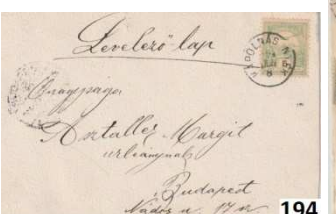 Levelező-lap
KÁPOLNÁS NYÉK
Nagysága
Asztaller Margit
urleánynak
Budapest
Nádor u. 17 sz.
194